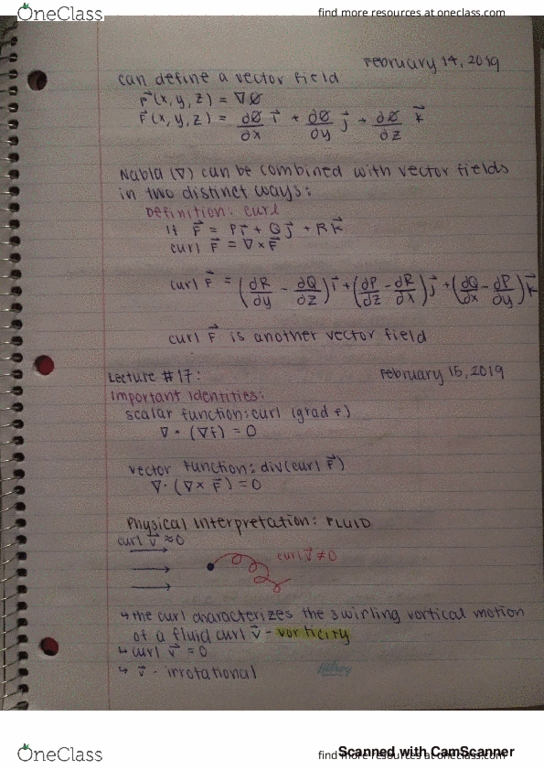 OneClass
find more resources at oneclass.com
February 14, 2019
can define a vector field
r⃗(x, y, z) = ∇Ø
F⃗(x, y, z) = ∂Ø/∂x i⃗ + ∂Ø/∂y j⃗ + ∂Ø/∂z k⃗
Nabla (∇) can be combined with vector fields
in two distinct ways:
Definition: curl
if F⃗ = Pi⃗ + Qj⃗ + Rk⃗
curl F⃗ = ∇×F⃗
curl F⃗ = (∂R/∂y - ∂Q/∂z) i⃗ + (∂P/∂z - ∂R/∂x) j⃗ + (∂Q/∂x - ∂P/∂y) k⃗
curl F⃗ is another vector field
Lecture #17:
February 15, 2019
Important Identities:
scalar function: curl (grad f)
∇ · (∇f) = 0
vector function: div(curl F⃗)
∇· (∇× F⃗) = 0
Physical Interpretation: FLUID
curl v⃗ ≈ 0
curl v⃗ ≠ 0
↳ the curl characterizes the swirling vortical motion
of a fluid curl v⃗ - vorticity
↳ curl v⃗ = 0
↳ v⃗ - irrotational
OneClass
find more resources at oneclass.com
Scanned with CamScanner